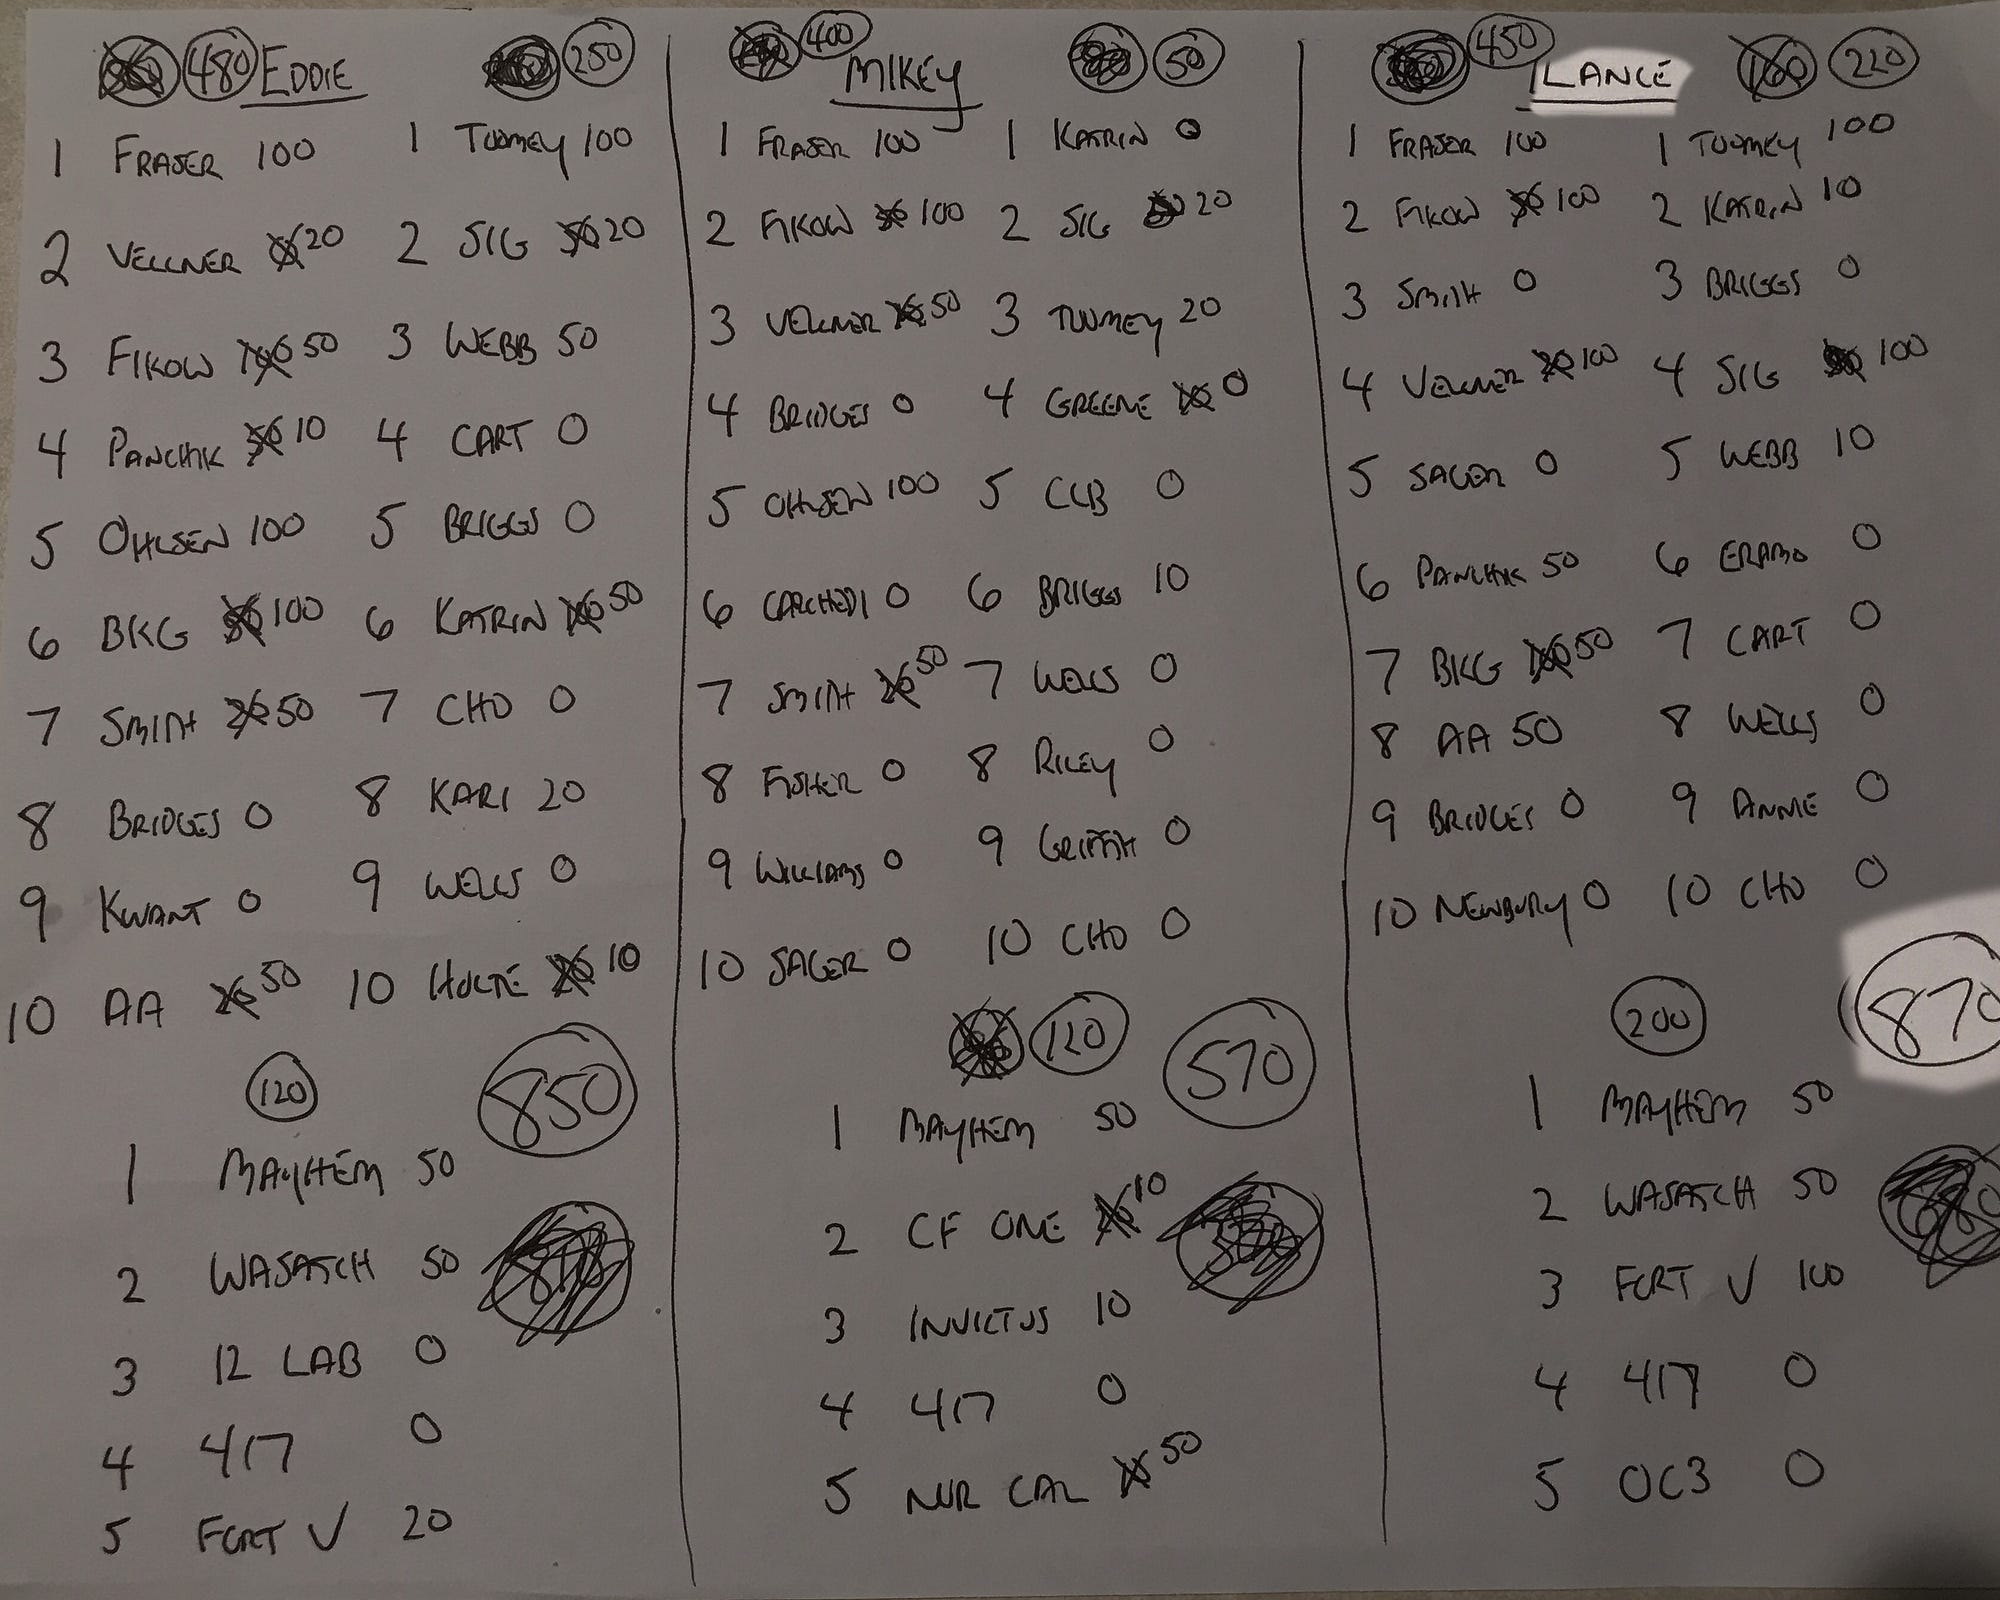 480 EDDIE 250
1 FRASER 100 1 TOOMEY 100
2 VELLNER 20 2 SIG 20
3 FIKOW 50 3 WEBB 50
4 PANCHIK 10 4 CART 0
5 OHLSEN 100 5 BRIGGS 0
6 BKG 100 6 KATRIN 50
7 SMITH 50 7 CHO 0
8 BRIDGES 0 8 KARI 20
9 KWANT 0 9 WELLS 0
10 AA 50 10 HOLTE 10
120 850
1 MAYHEM 50
2 WASATCH 50
3 12 LAB 0
4 417 0
5 FORT V 20
400 MIKEY 50
1 FRASER 100 1 KATRIN 0
2 FIKOW 100 2 SIG 20
3 VELLNER 50 3 TOOMEY 20
4 BRIDGES 0 4 GREENE 0
5 OHLSEN 100 5 CLB 0
6 CARCHEDI 0 6 BRIGGS 10
7 SMITH 50 7 WELLS 0
8 FISHER 0 8 RILEY 0
9 WILLIAMS 0 9 GRIFFITH 0
10 SAGER 0 10 CHO 0
120 570
1 MAYHEM 50
2 CF ONE 10
3 INVICTUS 10
4 417 0
5 NOR CAL 50
450 LANCE 160 220
1 FRASER 100 1 TOOMEY 100
2 FIKOW 100 2 KATRIN 10
3 SMITH 0 3 BRIGGS 0
4 VELLNER 100 4 SIG 100
5 SAGER 0 5 WEBB 10
6 PANCHIK 50 6 ERAMO 0
7 BKG 50 7 CART 0
8 AA 50 8 WELLS 0
9 BRIDGES 0 9 ANNIE 0
10 NEWBURY 0 10 CHO 0
200 870
1 MAYHEM 50
2 WASATCH 50
3 FORT V 100
4 417 0
5 OC3 0